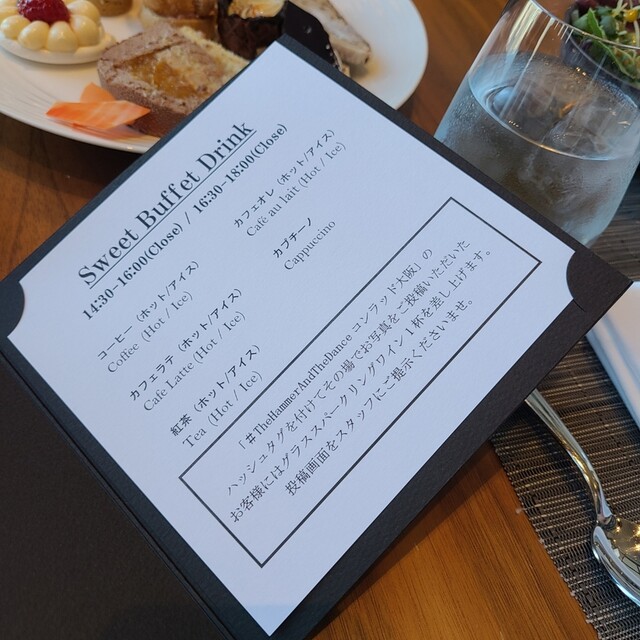 Sweet Buffet Drink
14:30-16:00(Close) / 16:30-18:00(Close)
コーヒー（ホット/アイス）
Coffee (Hot / Ice)
カフェラテ（ホット/アイス）
Cafe Latte (Hot / Ice)
紅茶（ホット/アイス）
Tea (Hot / Ice)
カフェオレ（ホット/アイス）
Café au lait (Hot / Ice)
カプチーノ
Cappuccino
「＃TheHammerAndTheDance コンラッド大阪」の
ハッシュタグを付けてその場でお写真をご投稿いただいた
お客様にはグラススパークリングワイン1杯を差し上げます。
投稿画面をスタッフにご提示くださいませ。